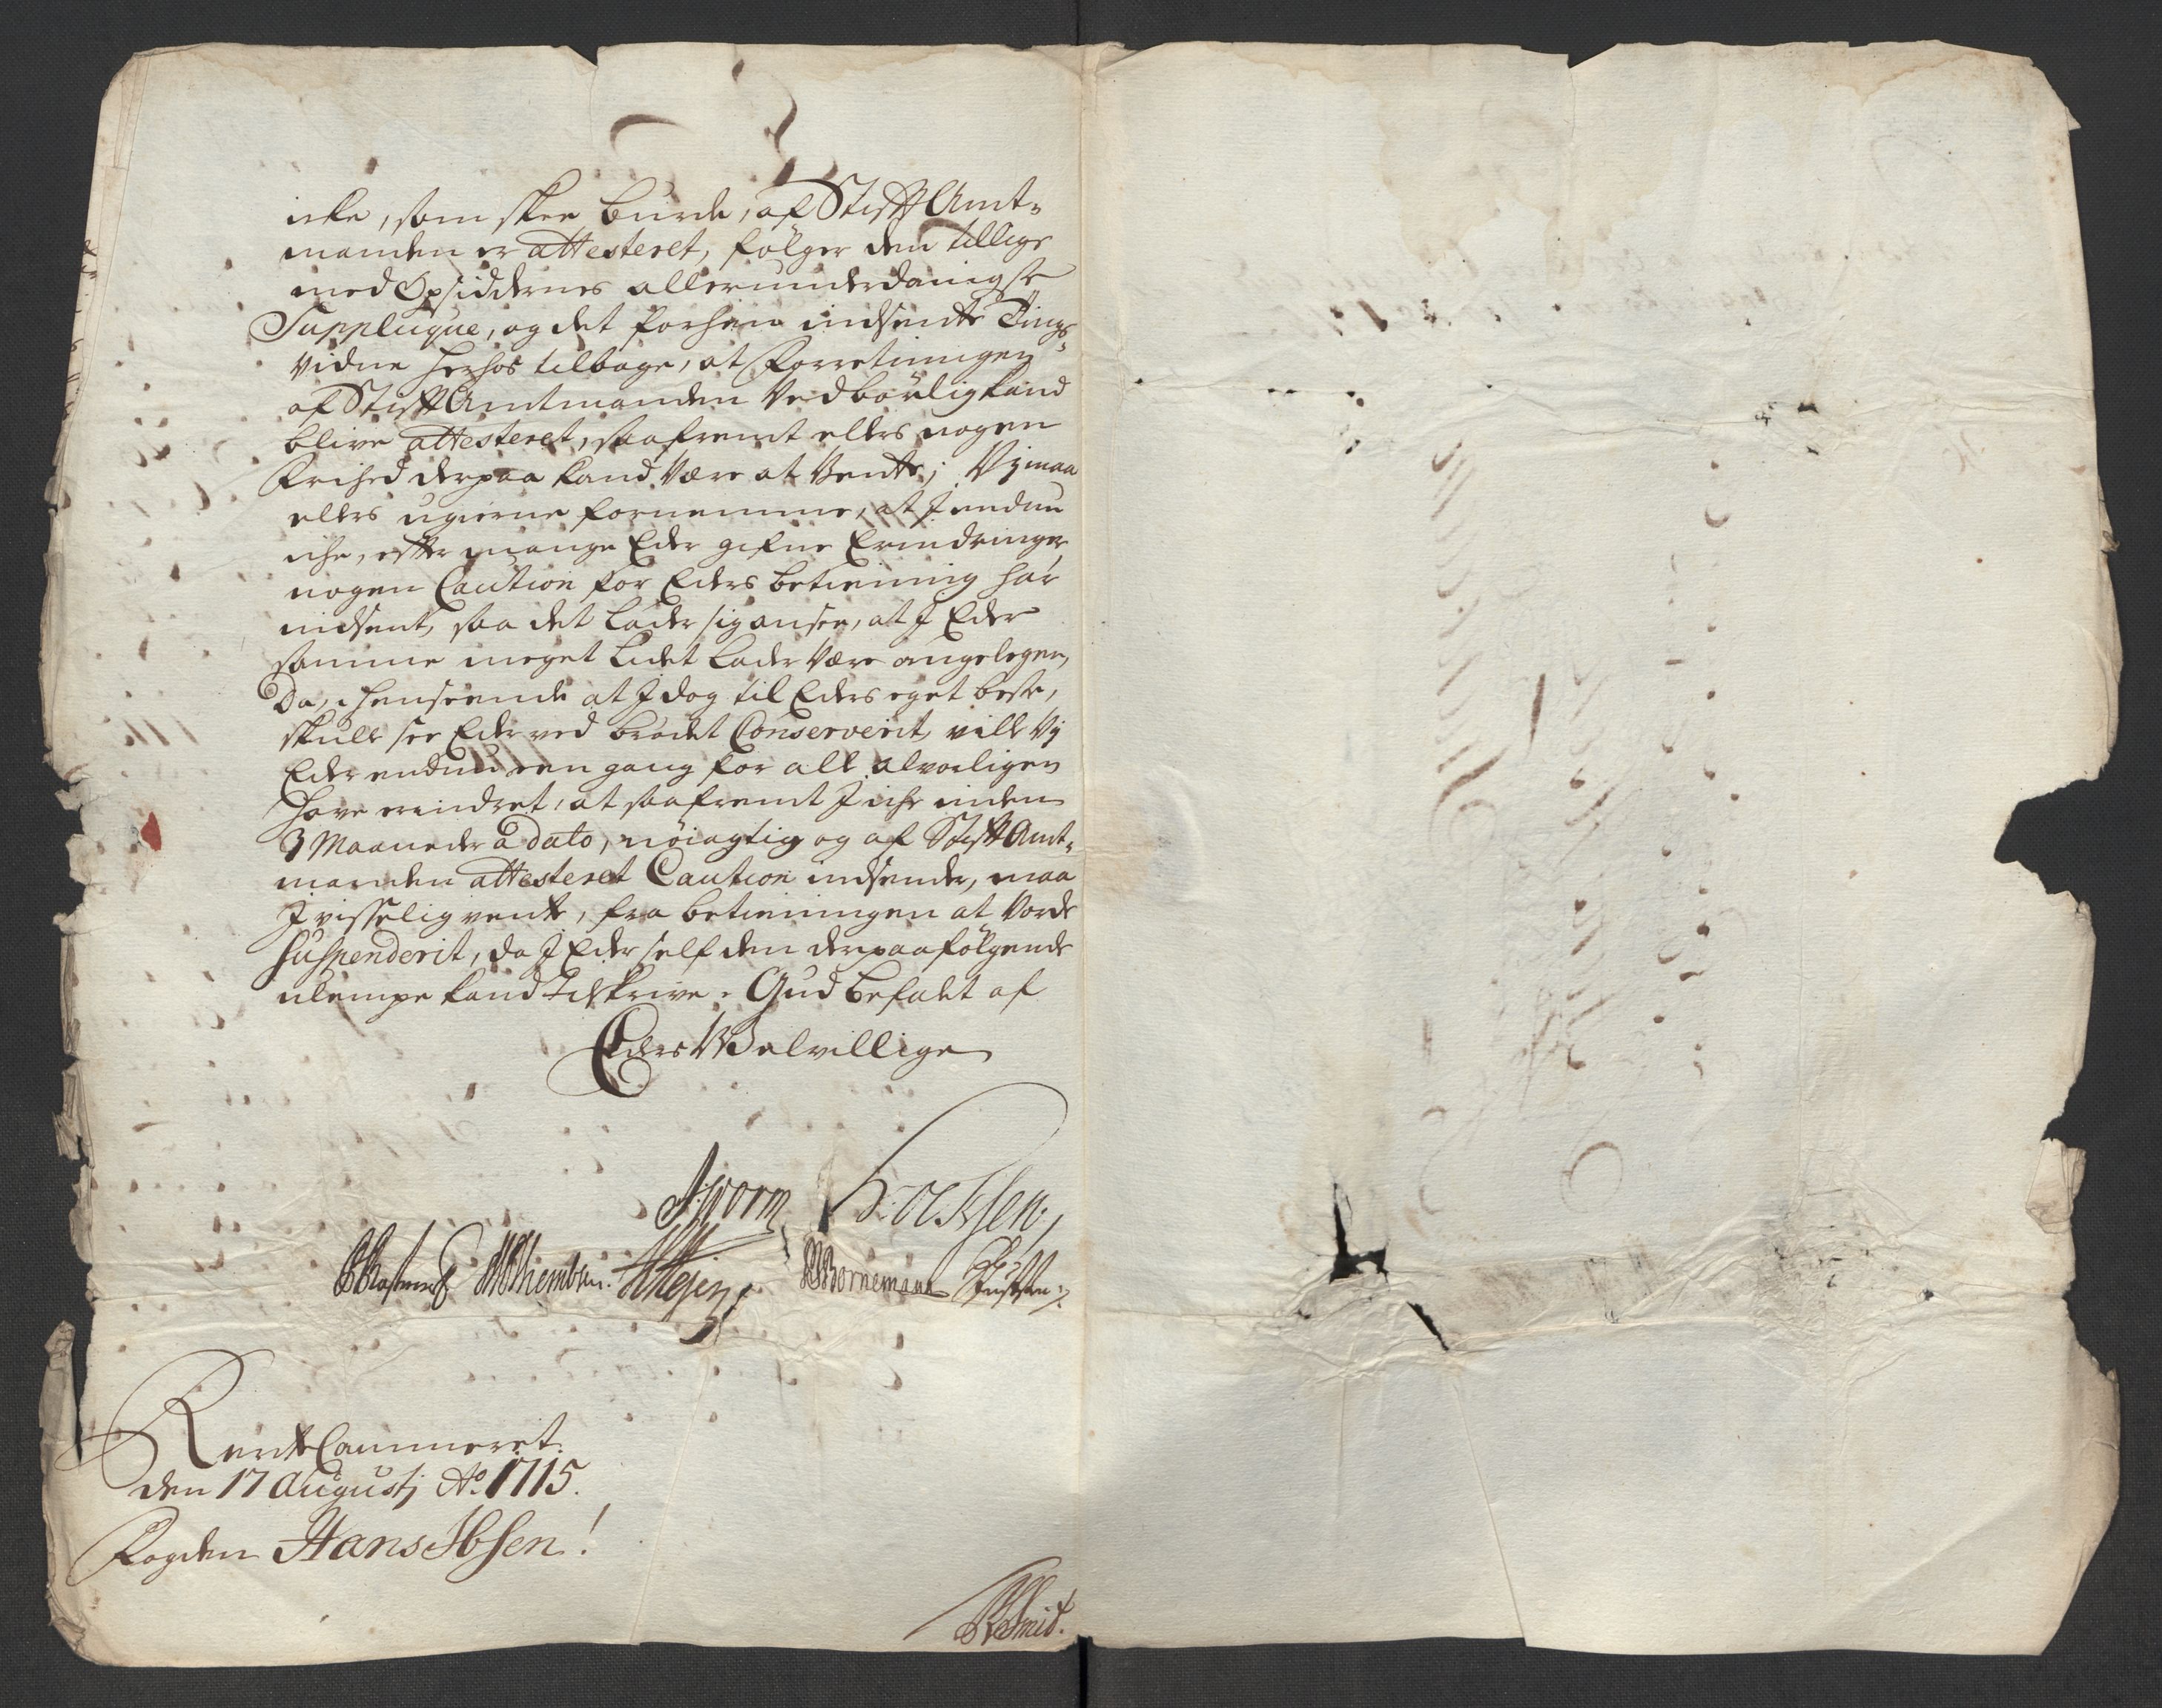 icke, som skee burde, af Stifft Amt-
manden er attesteret, følger den tillige
med Opsiddernes allerunderdanigste
Supplicque, og det forhen indsendte Tings-
vidne herhos tilbage, at Forretningen
af Stifft Amtmanden Vedbørlig kand
blive attesteret, saafremt ellers nogen
Frihed derpaa kand være at Vente; Vj maa
ellers ugierne fornemme, at I endnu
iche, efter mange Eder gifne Erindringer
nogen Caution for Eders betiening har
indsent, saa det lader sig ansee, at I Eder
samme meget lidet lader være angelegen,
Da, i henseende at I dog til Eders eget beste,
skulle see Eder ved brødet Conserverit, ville Vj
Eder endnu een gang for alle alvorligen
have erindret, at saafremt I iche inden
3 Maaneder a dato, nøiagtig og af Stifft Amt-
manden attesteret Caution indsender, maa
I visselig vente, fra betieningen at vorde
suspenderit, da I Eder self den derpaa følgende
ulempe kand tilskrive. Gud befalet af
Eders Velvillige
J: Worm
Bornemann
Rente Cammeret
den 17 Augustj Ao. 1715.
Fogden Hans Ibsen!
Smit.